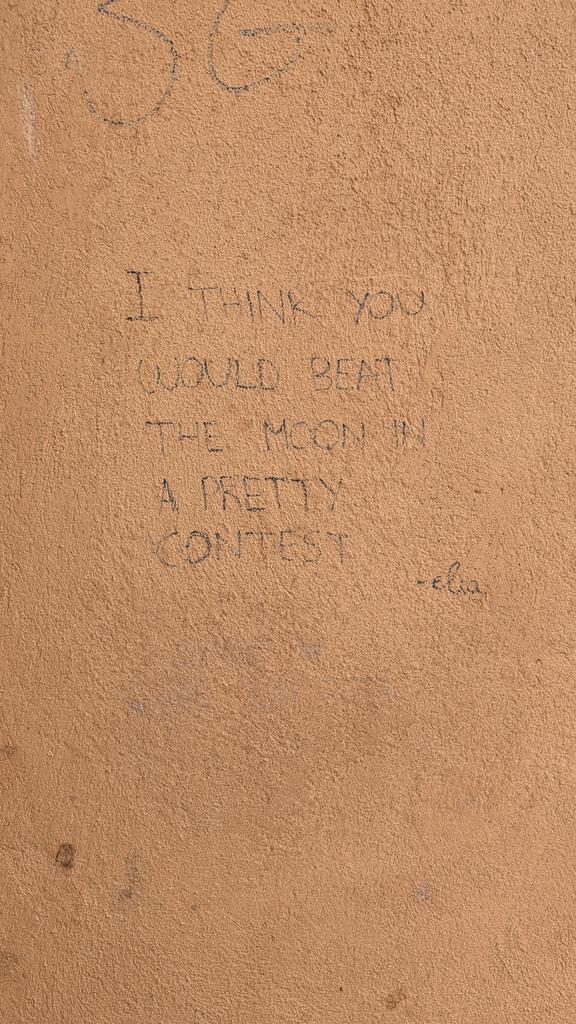 SG
I THINK YOU
WOULD BEAT
THE MOON IN
A PRETTY
CONTEST
-elia